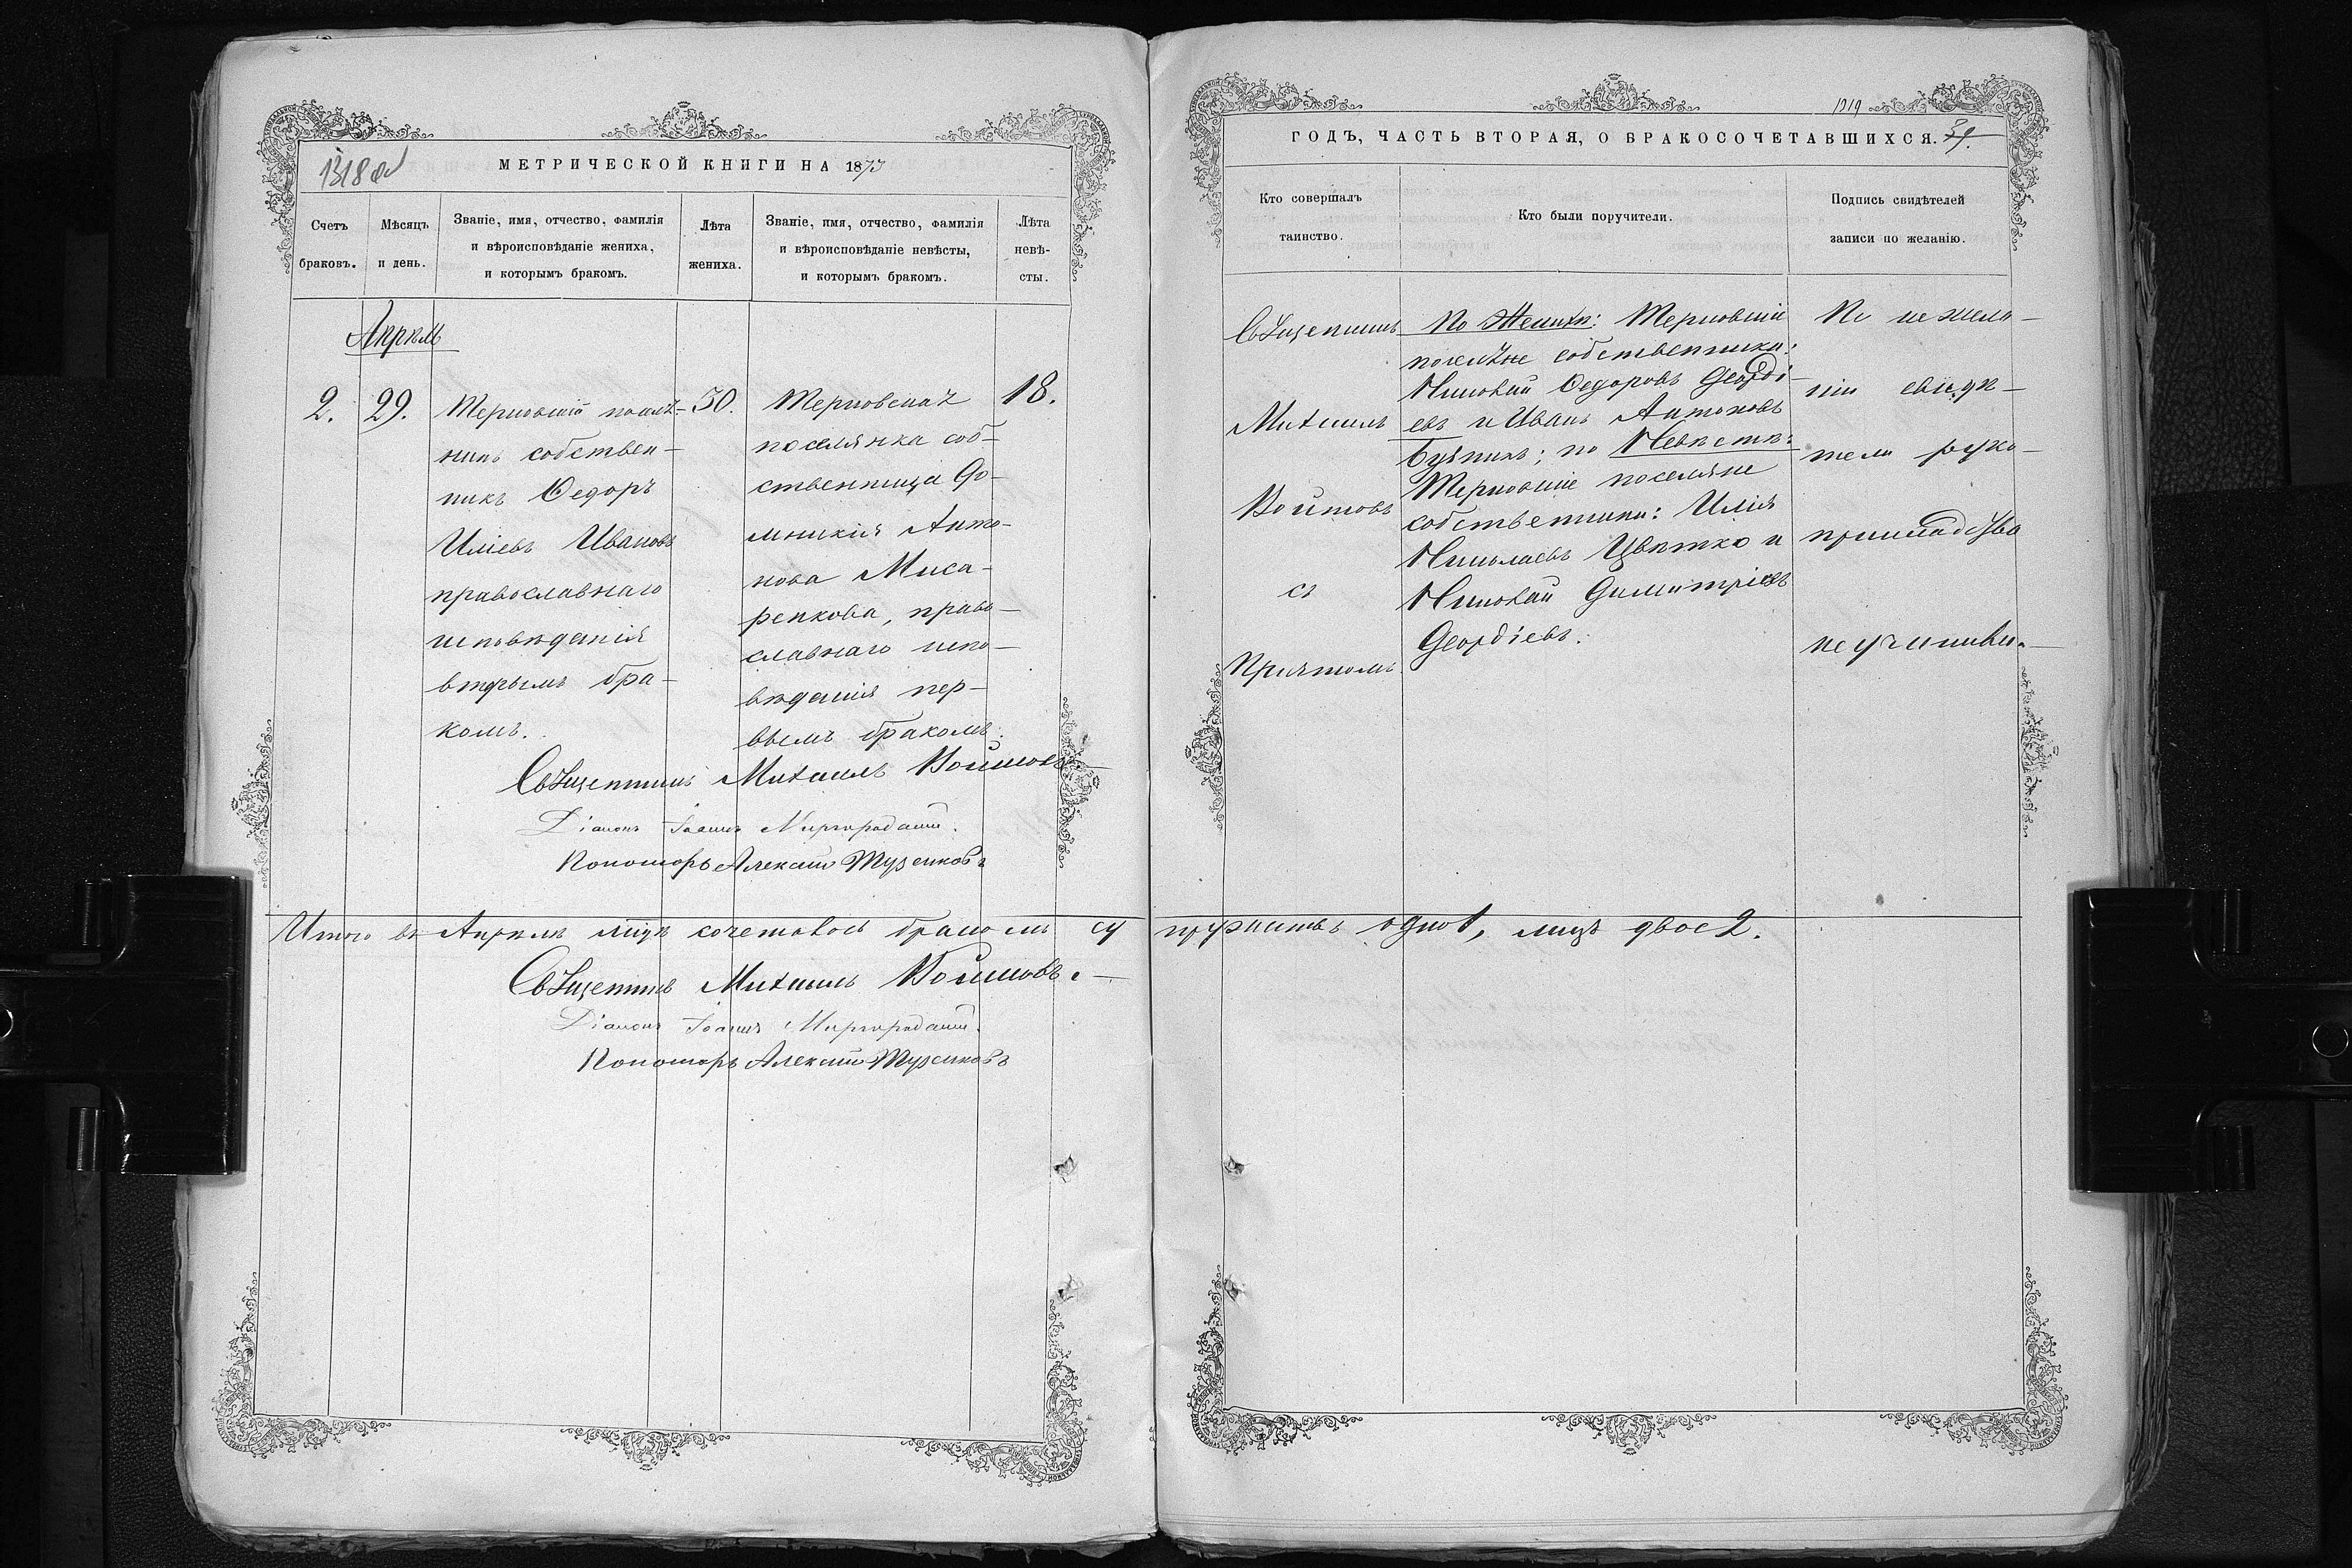 1318 об
МЕТРИЧЕСКОЙ КНИГИ НА 1873
Счетъ браковъ.
Мѣсяцъ и день.
Званіе, имя, отчество, фамилія
и вѣроисповѣданіе жениха,
и которымъ бракомъ.
Лѣта жениха.
Званіе, имя, отчество, фамилія
и вѣроисповѣданіе невѣсты,
и которымъ бракомъ.
Лѣта невѣ-
сты.
Апрѣль
2.
29.
Терновскій посел̾я-
нинъ собствен-
никъ Ѳедоръ
Иліевъ Ивановъ
православнаго
исповѣданія
вторымъ бра-
комъ.
30.
Терновская
поселянка соб-
ственница До-
мникія Анто-
нова Миса-
ренкова, право-
славнаго испо-
вѣданія пер-
вымъ бракомъ.
18.
Священникъ Михаилъ Войтовъ
Діаконъ Іоаннъ Миргородскій.
Пономарь Алексій Тузенковъ
Итого въ Апрѣлѣ мцѣ сочеталось бракомъ су
Священникъ Михаилъ Войтовъ.
Діаконъ Іоаннъ Миргородскій.
Пономарь Алексій Тузенковъ
1319
ГОДЪ, ЧАСТЬ ВТОРАЯ, О БРАКОСОЧЕТАВШИХСЯ. 39.
Кто совершалъ
таинство.
Кто были поручители.
Подпись свидѣтелей
записи по желанію.
Священникъ
Михаилъ
Войтовъ
съ
Причтомъ
По Женихѣ: Терновскіе
поселяне собственники:
Николай Ѳедоровъ Георгі-
евъ и Иванъ Антоновъ
по Невѣстѣ:
Терновскіе поселяне
собственники: Илія
Николаевъ Цвѣтко и
Николай Димитріевъ
Георгіевъ.
По нежела-
нію свидѣ-
тели руко-
прикладства
не учинили.
пружествъ одно 1, лицъ двое 2.